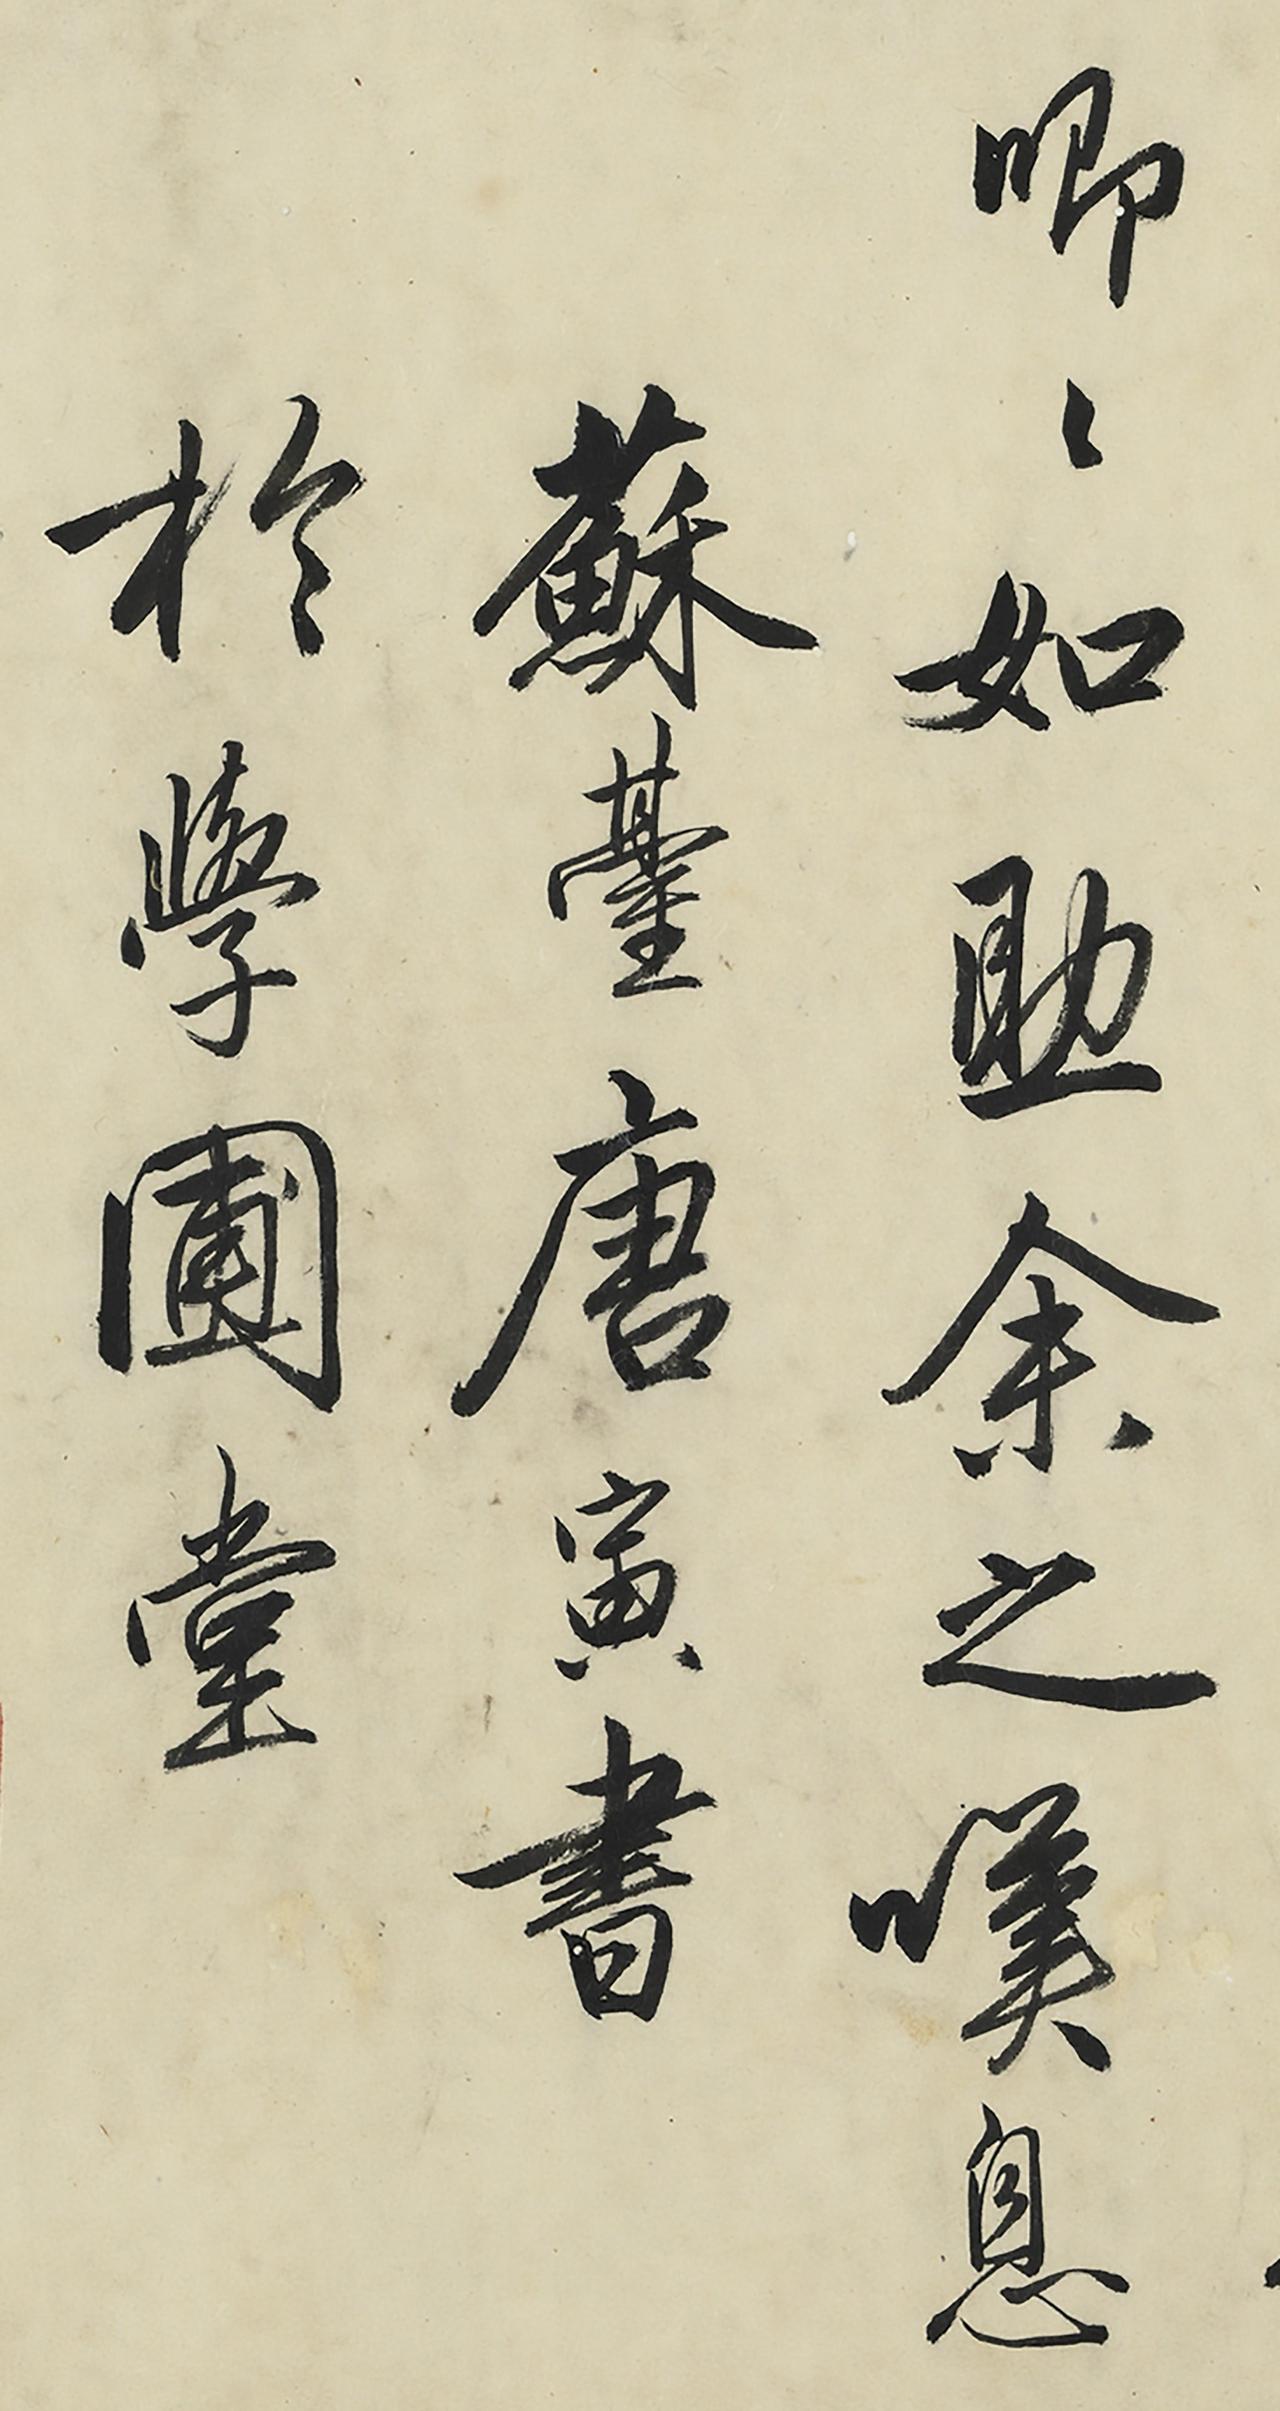 唧〻如助余之嘆息
蘇臺唐寅書
於學圃堂